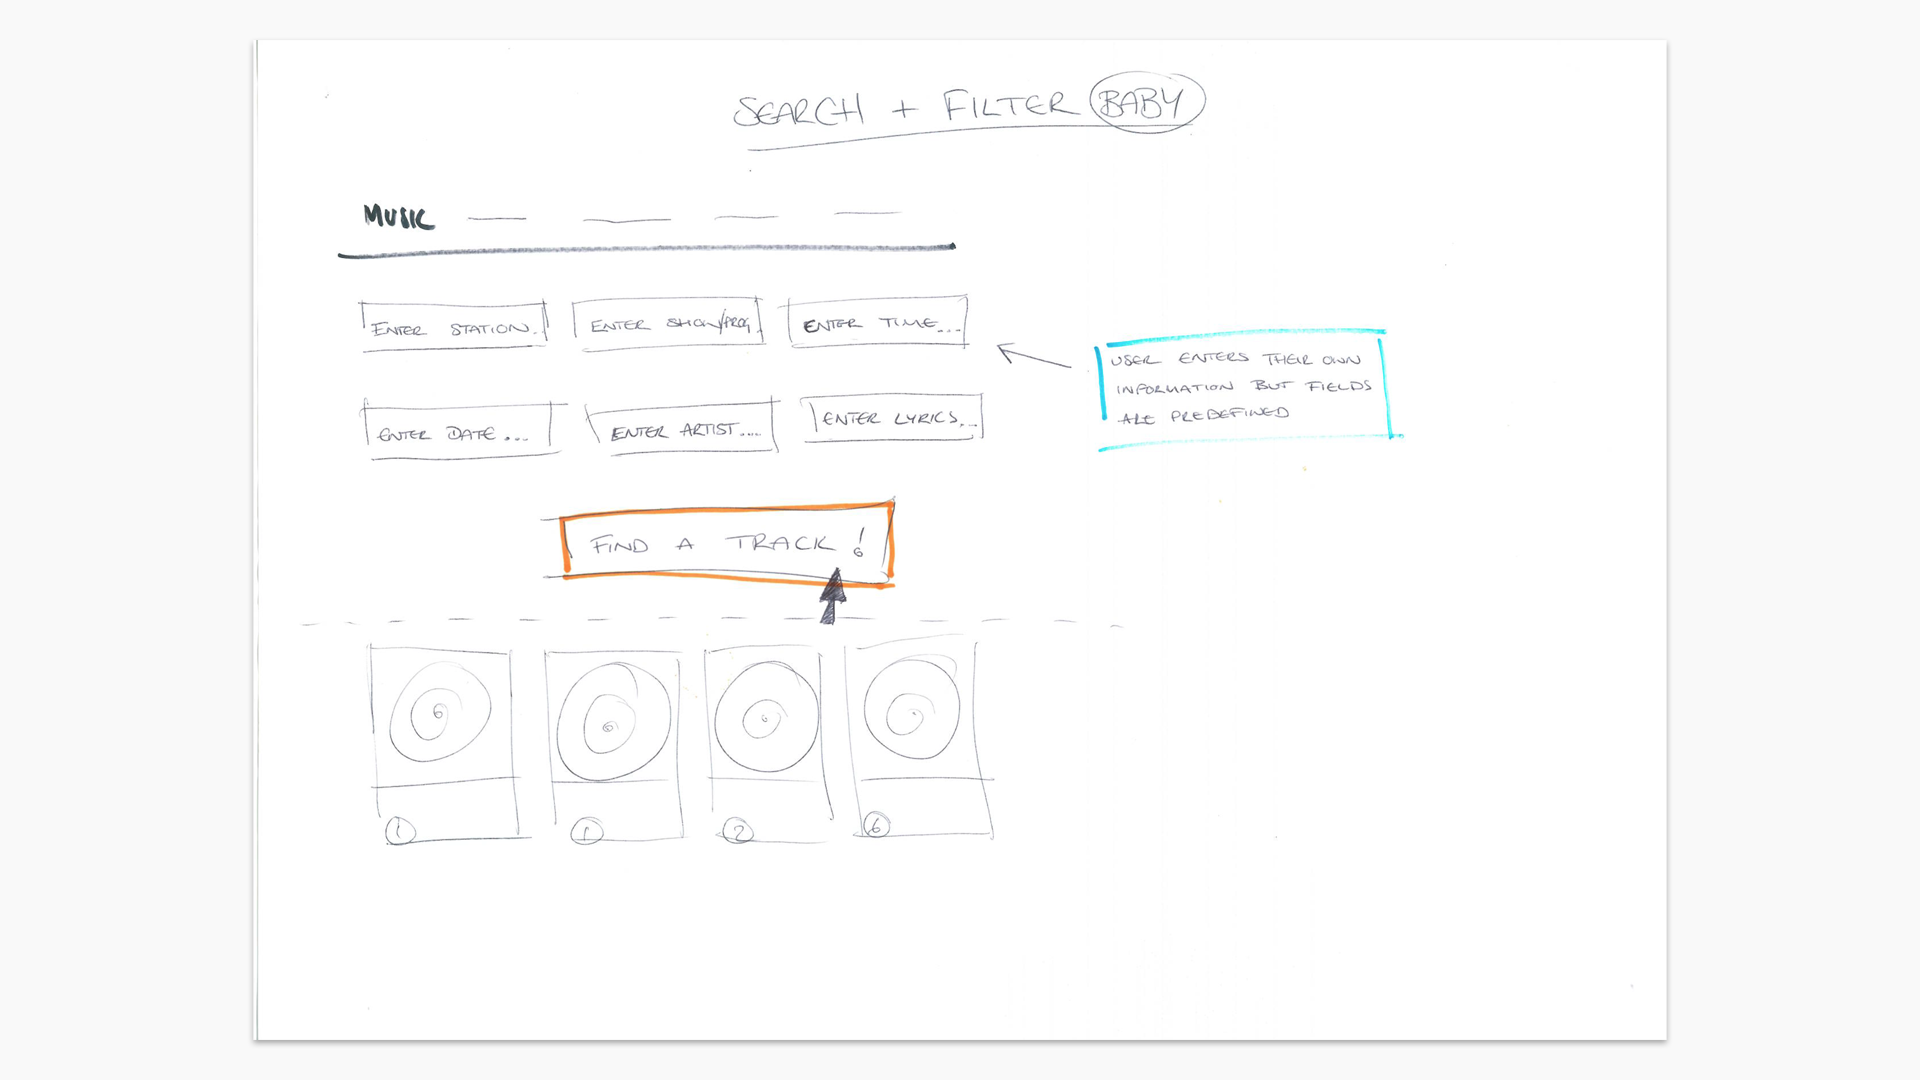 SEARCH + FILTER BABY
MUSIC
ENTER STATION..
ENTER SHOW/PROG.
ENTER TIME...
ENTER DATE...
ENTER ARTIST....
ENTER LYRICS...
USER ENTERS THEIR OWN
INFORMATION BUT FIELDS
ARE PREDEFINED
FIND A TRACK!
1
1
2
6